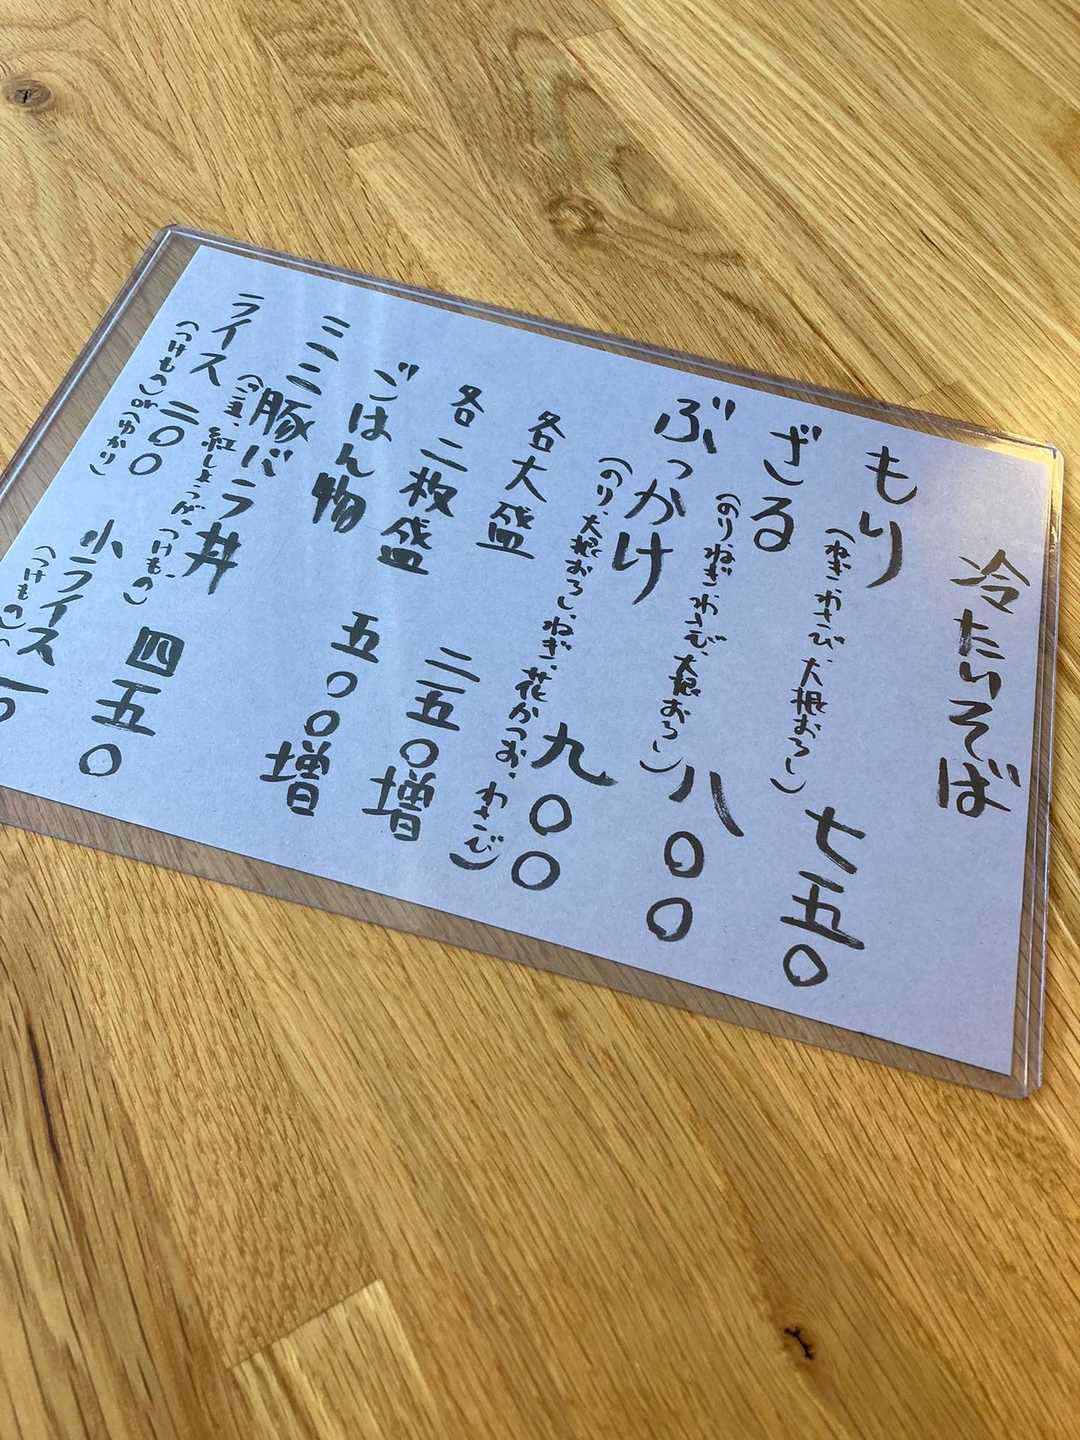 冷たいそば
もり 七五〇
(ねぎ、わさび、大根おろし)
ざる 八〇〇
(のり、ねぎ、わさび、大根おろし)
ぶっかけ 九〇〇
(のり、大根おろし、ねぎ、花かつお、わさび)
各大盛 二五〇増
各二枚盛 五〇〇増
ごはん物
ミニ豚バラ丼 四五〇
(ごま、紅しょうが、つけもの)
ライス 二〇〇 小ライス 一
(つけもの or ゆかり) (つけもの